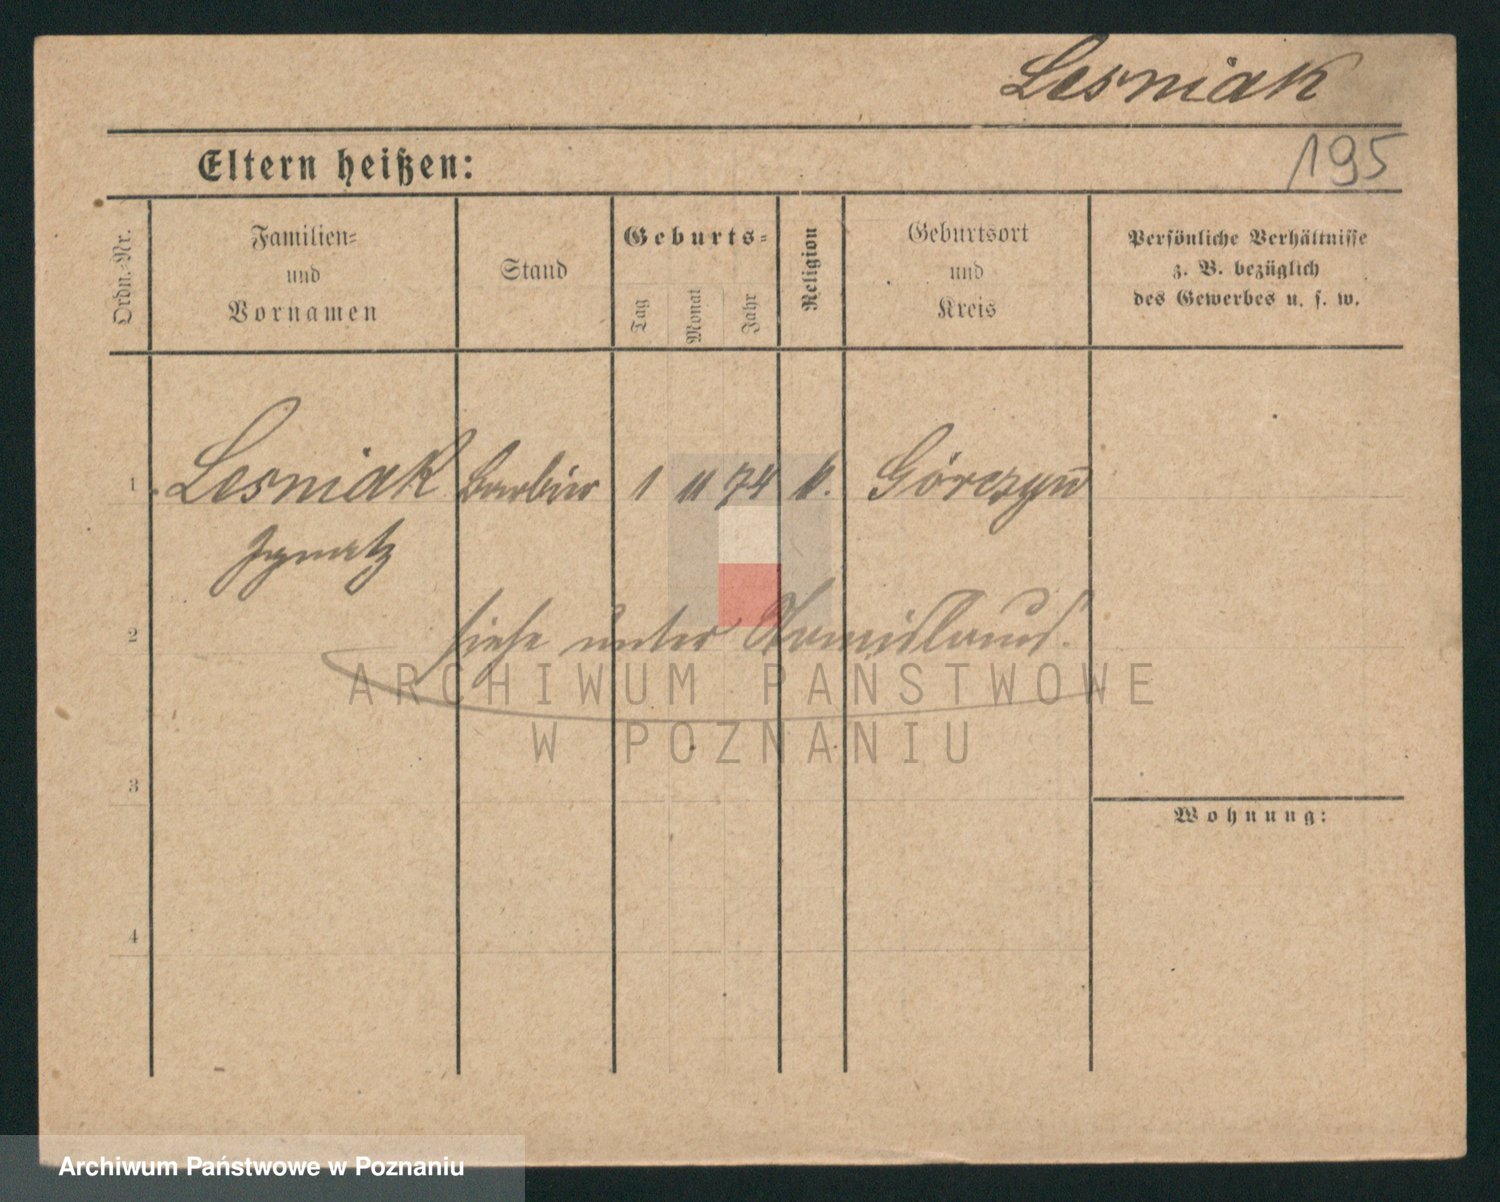 Lesniak
195
Eltern heißen:
Ordn.-Nr.
Familien-
und
Vornamen
Stand
Geburts-
Tag
Monat
Jahr
Religion
Geburtsort
und
Kreis
Persönliche Verhältnisse
z. B. bezüglich
des Gewerbes u. s. w.
1 Lesniak Barbier 1 11 74 k. Górczyn
Ignatz
2 siehe unter Stanislaus.
ARCHIWUM PAŃSTWOWE
W POZNANIU
3
Wohnung:
4
Archiwum Państwowe w Poznaniu